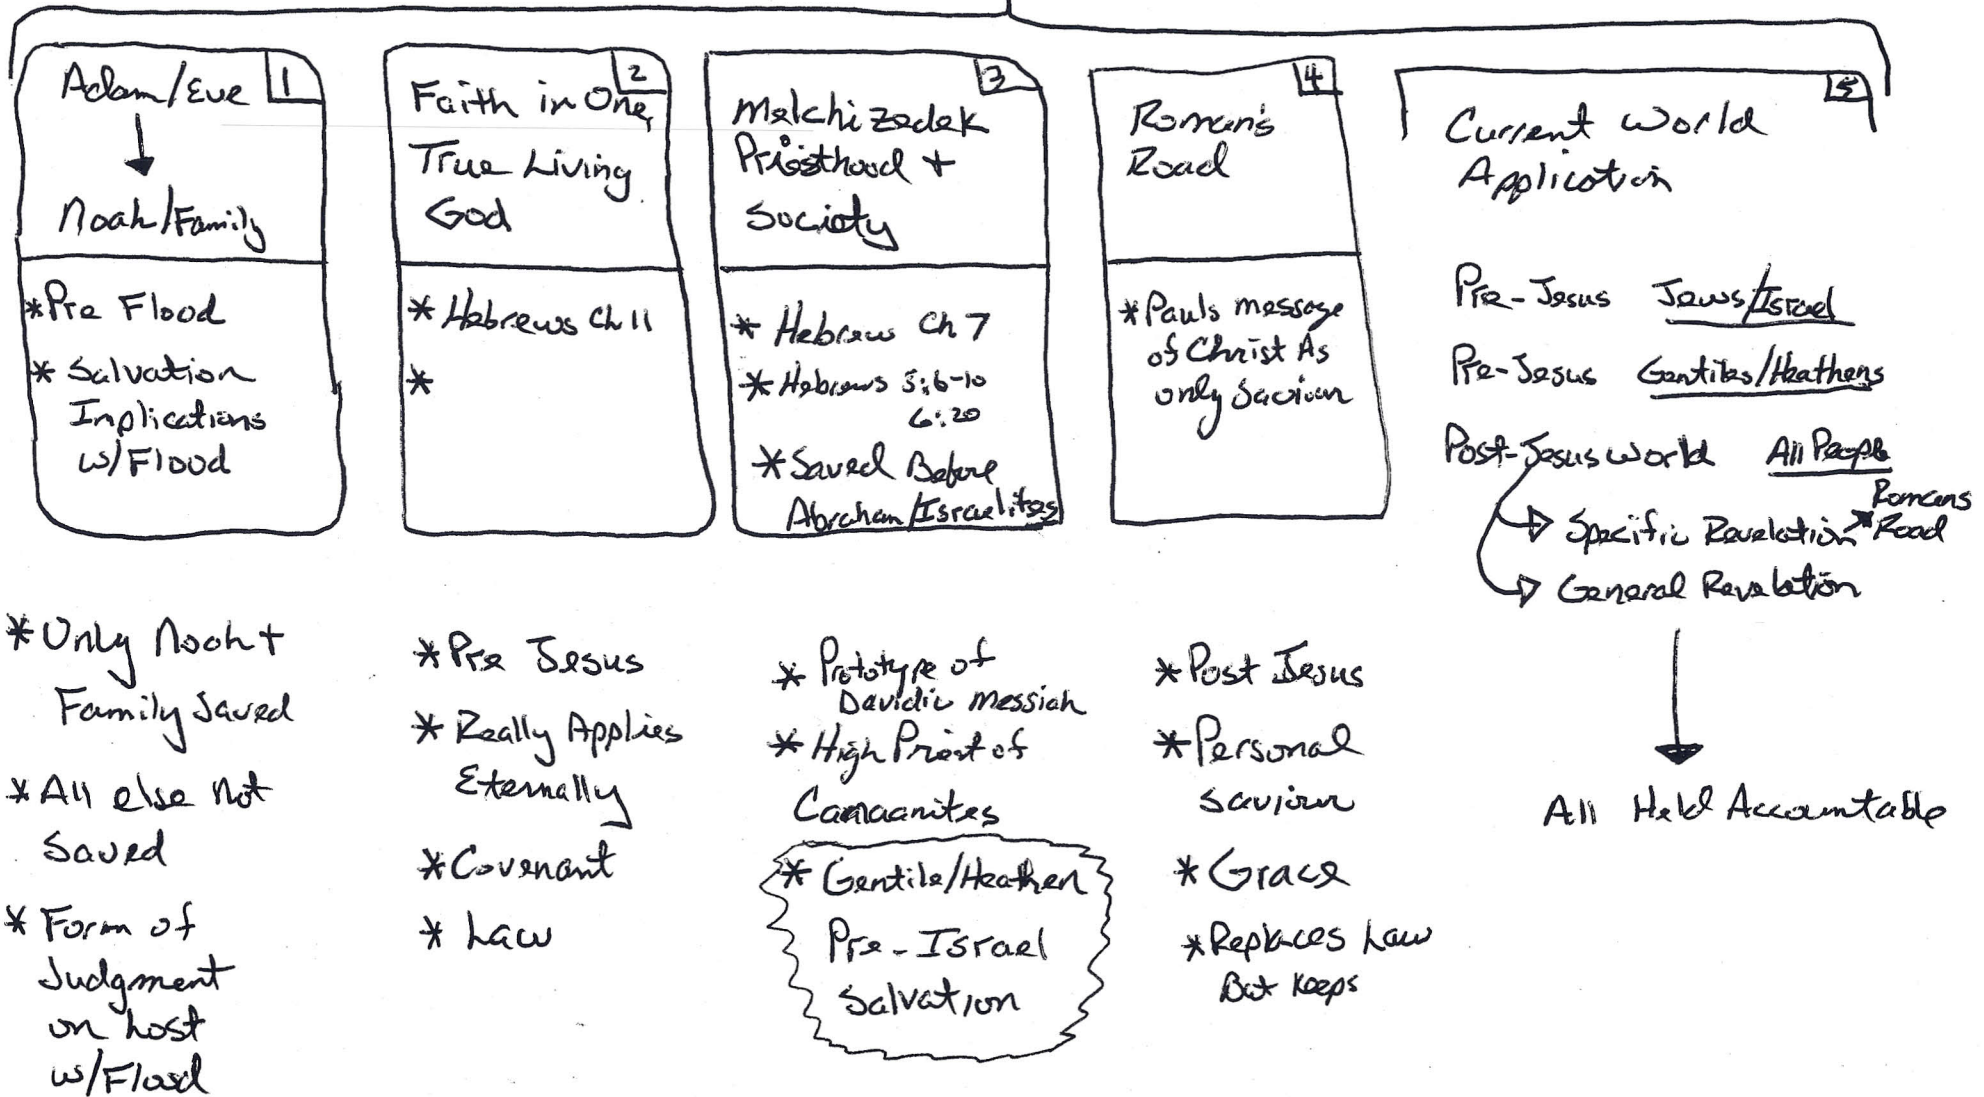 1
Adam/Eve
Noah/Family
*Pre Flood
* Salvation
Inplications
w/Flood
*Only Noah +
Family Saved
* All else not
Saved
* Form of
Judgment
on Lost
w/Flood
2
Faith in One,
True Living
God
* Hebrews Ch 11
*
*Pre Jesus
* Really Applies
Eternally
*Covenant
* Law
3
Melchizedek
Priesthood +
Society
* Hebrew Ch 7
* Hebrews 5:6-10
6:20
* Saved Before
Abraham/Israelites
* Prototype of
Davidic Messiah
* High Priest of
Canaanites
* Gentile/Heathen
Pre-Israel
Salvation
4
Roman's
Road
* Pauls message
of Christ As
only Saviour
*Post Jesus
*Personal
Saviour
*Grace
*Replaces Law
But Keeps
5
Current World
Application
Pre-Jesus Jews/Israel
Pre-Jesus Gentiles/Heathens
Post-Jesus World All People
Specific Revelation Romans
Road
General Revelation
All Held Accountable